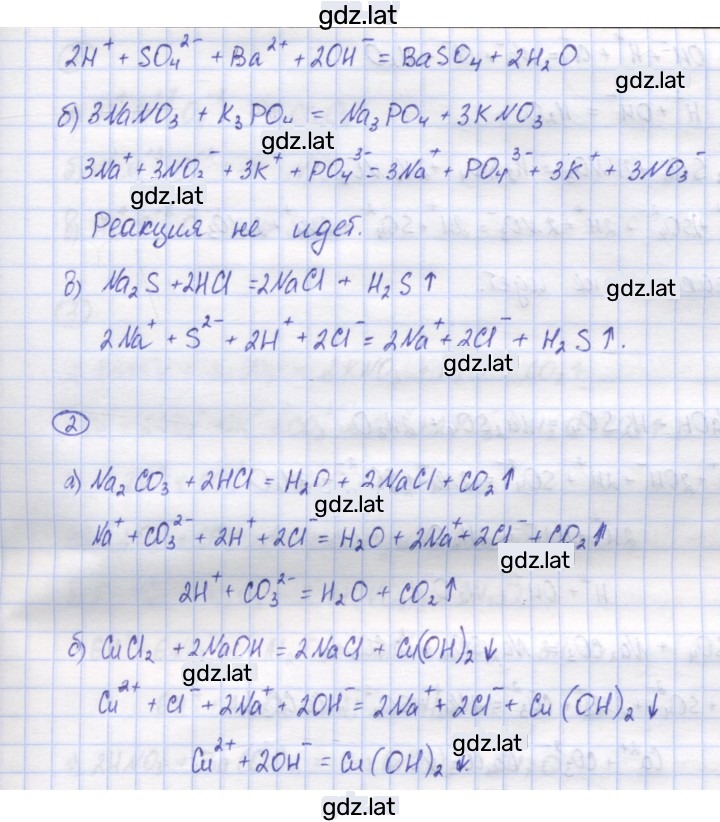 gdz.lat
2H⁺ + SO₄²⁻ + Ba²⁺ + 2OH⁻ = BaSO₄ + 2H₂O
gdz.lat
б) 3NaNO₃ + K₃PO₄ = Na₃PO₄ + 3KNO₃
gdz.lat
3Na⁺ + 3NO₂⁻ + 3K⁺ + PO₄³⁻ = 3Na⁺ + PO₄³⁻ + 3K⁺ + 3NO₃⁻
gdz.lat
Реакция не идет.
в) Na₂S + 2HCl = 2NaCl + H₂S↑
gdz.lat
2Na⁺ + S²⁻ + 2H⁺ + 2Cl⁻ = 2Na⁺ + 2Cl⁻ + H₂S↑.
gdz.lat
2
а) Na₂CO₃ + 2HCl = H₂O + 2NaCl + CO₂↑
gdz.lat
Na⁺ + CO₃²⁻ + 2H⁺ + 2Cl⁻ = H₂O + 2Na⁺ + 2Cl⁻ + CO₂↑
gdz.lat
2H⁺ + CO₃²⁻ = H₂O + CO₂↑
б) CuCl₂ + 2NaOH = 2NaCl + Cu(OH)₂↓
gdz.lat
Cu²⁺ + Cl⁻ + 2Na⁺ + 2OH⁻ = 2Na⁺ + 2Cl⁻ + Cu(OH)₂↓
gdz.lat
Cu²⁺ + 2OH⁻ = Cu(OH)₂↓.
gdz.lat